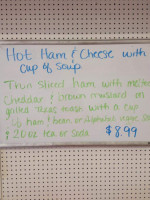 Hot Ham & Cheese with
Cup of Soup
Thin Sliced ham with melted
Cheddar & brown mustard on
grilled Texas toast with a cup
of ham & bean or
& 20oz tea or Soda. $8.99